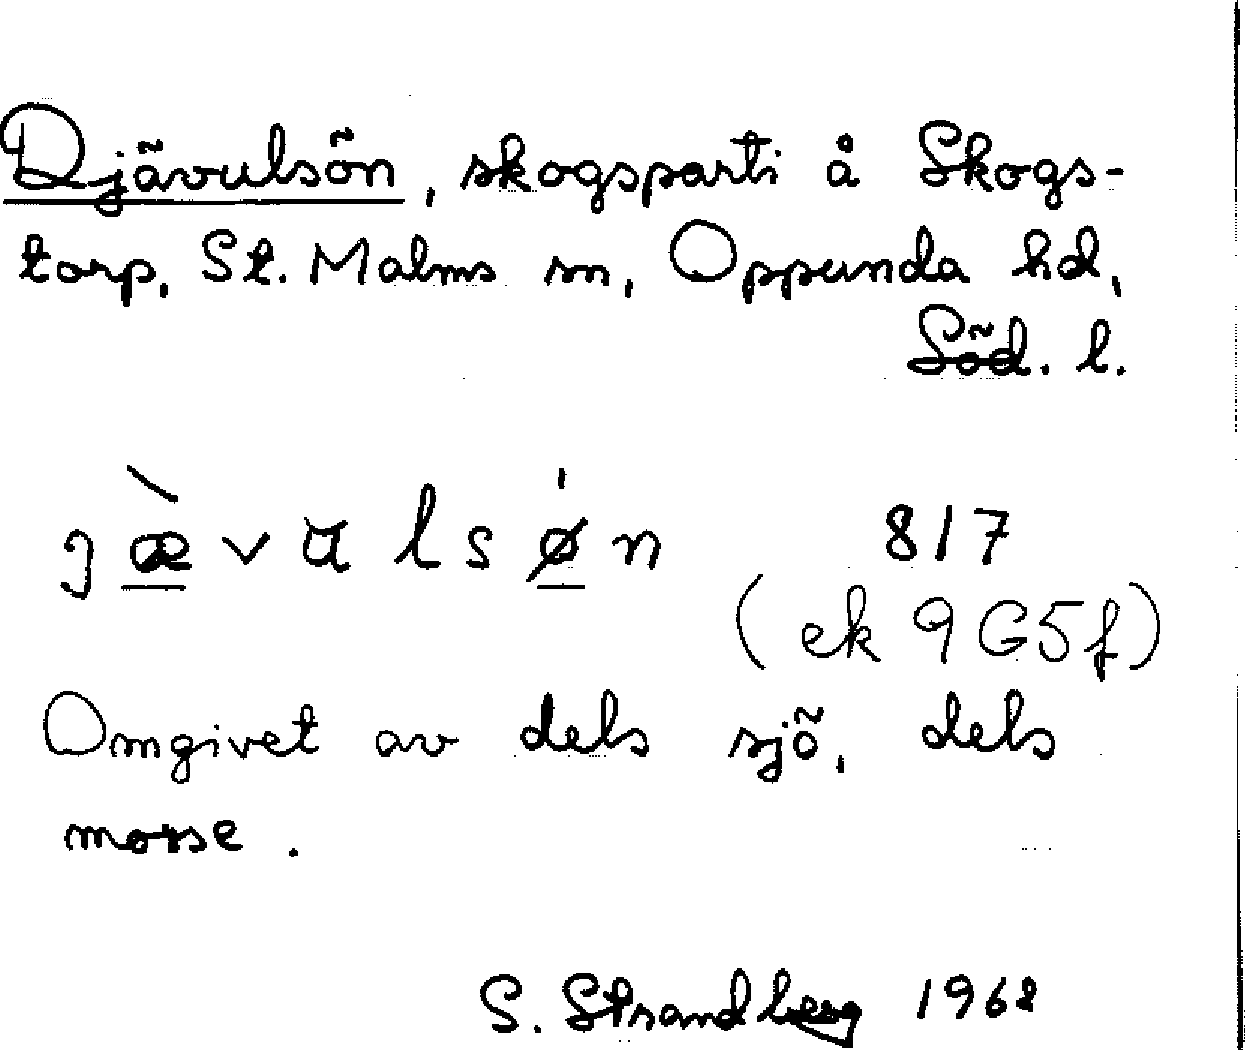 Djävulsön, skogsparti å Skogs-
torp, St. Malms sn, Oppunda hd,
Söd. l.
jæ̀vɑlsǿn 817
(ek 9G5f)
Omgivet av dels sjö, dels
mosse.
S. Strandberg 1968